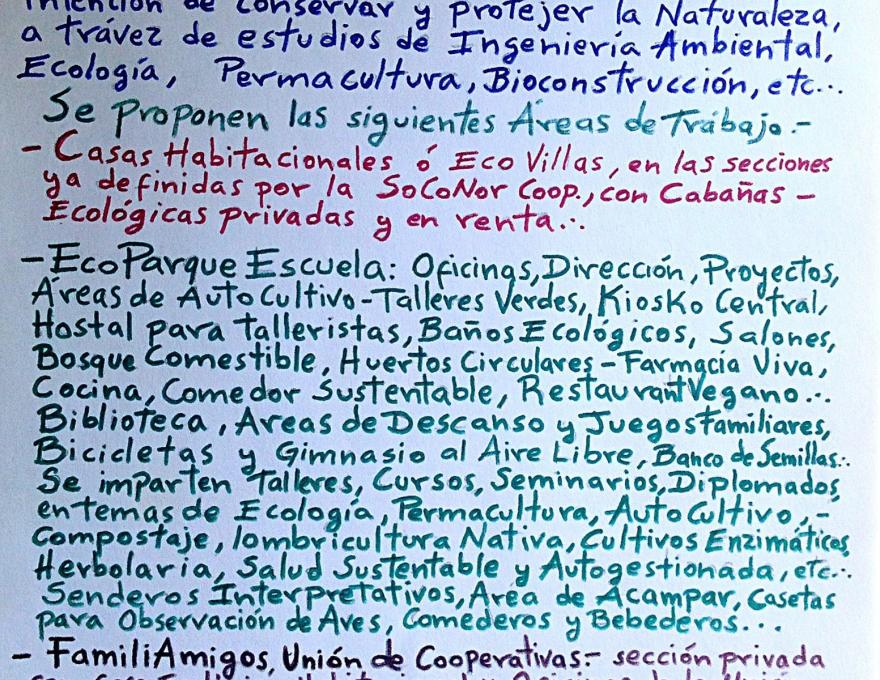 intención de conservar y protejer la Naturaleza,
a trávez de estudios de Ingeniería Ambiental,
Ecología, Permacultura, Bioconstrucción, etc...
Se Proponen las siguientes Áreas de Trábajo.-
- Casas Habitacionales ó Eco Villas, en las secciones
ya definidas por la SoCoNor Coop., con Cabañas -
Ecológicas privadas y en renta...
- EcoParque Escuela: Oficinas, Dirección, Proyectos,
Áreas de AutoCultivo-Talleres Verdes, Kiosko Central,
Hostal para talleristas, Baños Ecológicos, Salones,
Bosque Comestible, Huertos Circulares - Farmacia Viva,
Cocina, Comedor Sustentable, Restaurant Vegano...
Biblioteca, Areas de Descanso y Juegos Familiares,
Bicicletas y Gimnasio al Aire Libre, Banco de Semillas...
Se imparten Talleres, Cursos, Seminarios, Diplomados,
en temas de Ecología, Permacultura, AutoCultivo, -
Compostaje, lombricultura Nativa, Cultivos Enzimáticos,
Herbolaria, Salud Sustentable y Autogestionada, etc...
Senderos Interpretativos, Area de Acampar, Casetas
para Observación de Aves, Comederos y Bebederos...
- FamiliAmigos, Unión de Cooperativas:- sección privada